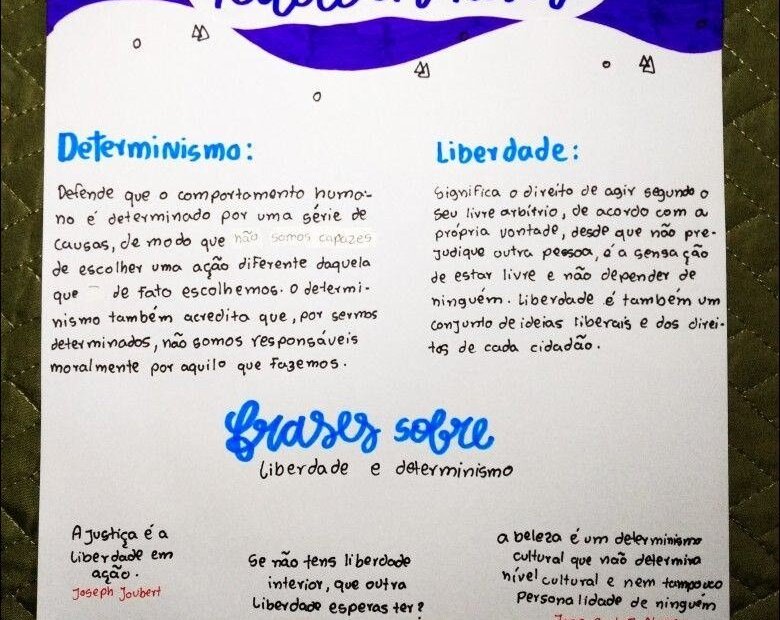 Determinismo:
Defende que o comportamento huma-
no é determinado por uma série de
causas, de modo que não somos capazes
de escolher uma ação diferente daquela
que de fato escolhemos. o determi-
nismo também acredita que, por sermos
determinados, não somos responsáveis
moralmente por aquilo que fazemos.
Liberdade:
Significa o direito de agir segundo o
seu livre arbítrio, de acordo com a
própria vontade, desde que não pre-
judique outra pessoa, é a sensação
de estar livre e não depender de
ninguém. Liberdade é também um
conjunto de ideias liberais e dos direi-
tos de cada cidadão.
frases sobre
liberdade e determinismo
A Justiça é a
liberdade em
ação.
Joseph Joubert
Se não tens liberdade
interior, que outra
Liberdade esperas ter?
a beleza é um determinismo
cultural que não determina
nível cultural e nem tampouco
Personalidade de ninguém